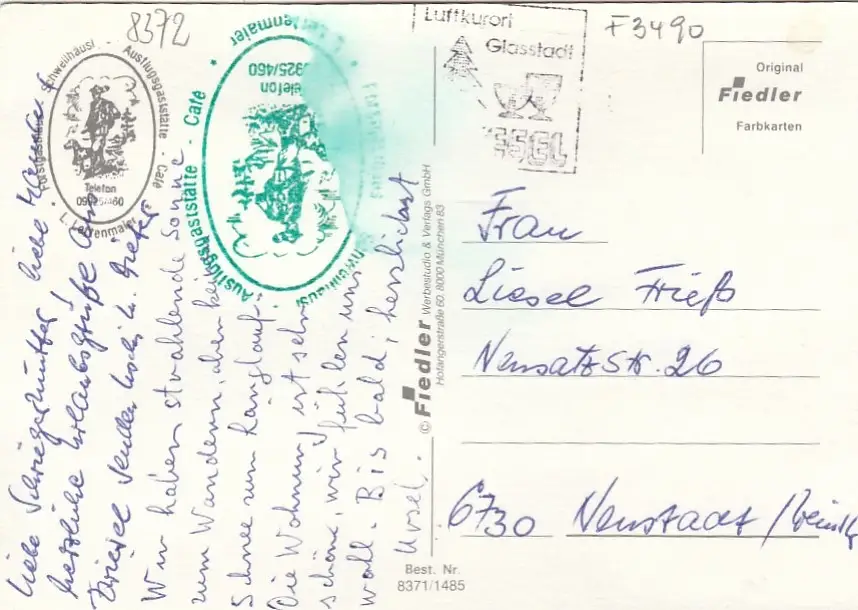 8372
F3490
Schweilhäusl · Ausflugsgaststätte · Café
Telefon
09925/460
L. Lettenmaier
Forstgaststätte
Ausflugsgaststätte · Café
Telefon
0925/460
Luftkurort
Glasstadt
Original
Fiedler
Farbkarten
Liebe Schwiegermutter, liebe
herzliche Urlaubsgrüße aus
Zwiesel senden
Wir haben strahlende Sonne
zum Wandern, aber kein
Schnee zum Langlauf.
Die Wohnung ist sehr
schön, wir fühlen uns
wohl. Bis bald, herzlichst
Ursel.
© Fiedler Werbestudio & Verlags GmbH
Hofangerstraße 60, 8000 München 83
Frau
Liesel Frieß
Neusatzstr. 26
6730 Neustadt /Weinstr
Best. Nr.
8371/1485